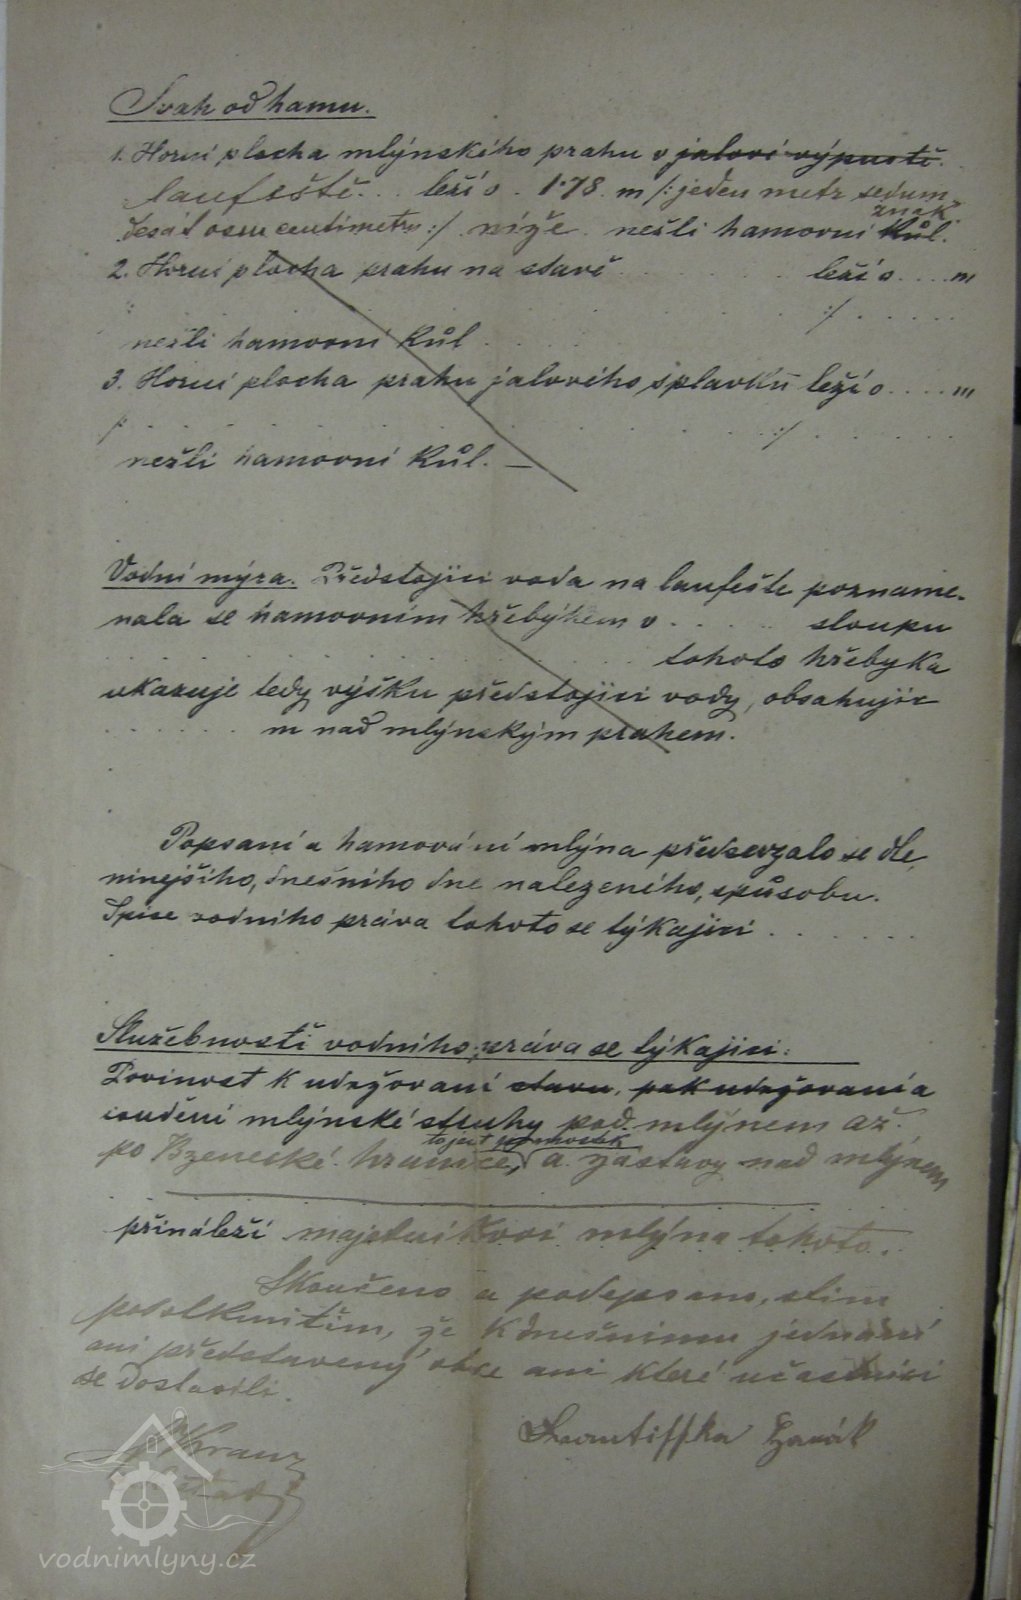 Svah od hamu.
1. Horní plocha mlýnského prahu v jalové výpustě.
laufeště. leží o 1·78 m /: jeden metr sedum-
desát osm centimetru :/ níže nežli hamovní kůl.
znak.
2. Horní plocha prahu na stavě leží o . . . . m
:/ . . . . .
nežli hamovní kůl
3. Horní plocha prahu jalového splavku leží o . . . . m
/: . . . . :/ . . . . .
nežli hamovní kůl. —
Vodní mýra. Předstojící voda na laufešte pozname-
nala se hamovním hřebýkem v . . . . sloupu
tohoto hřebyka
ukazuje tedy výšku předstojící vody, obsahujíc
. . . . . . m nad mlýnským prahem.
Popsaní a hamování mlýna předsevzalo se dle,
ninějšího, dnešního dne nalezeného, spůsobu.
Spise vodního práva tohoto se týkající . . . . . .
Služebnosti vodního práva se týkající:
Povinost k udržovaní stavu, pak udržovaní a
čudění mlýnské struhy pod mlýnem až
tojest
po Bzenecké hranice, a zástavy nad mlýnem
přináleží majetníkovi mlýna tohoto.
Skončeno a podepsano, stim
podotknutím, že k dnešnímu jednání
ani představený obce ani kteří učastníci
se dostavili.
Krauz
Frantisska Horák
vodnimlyny.cz